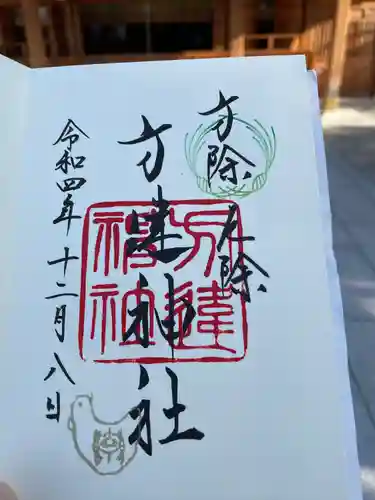 方除 厄除
方違神社
令和四年十二月八日
方違
神社